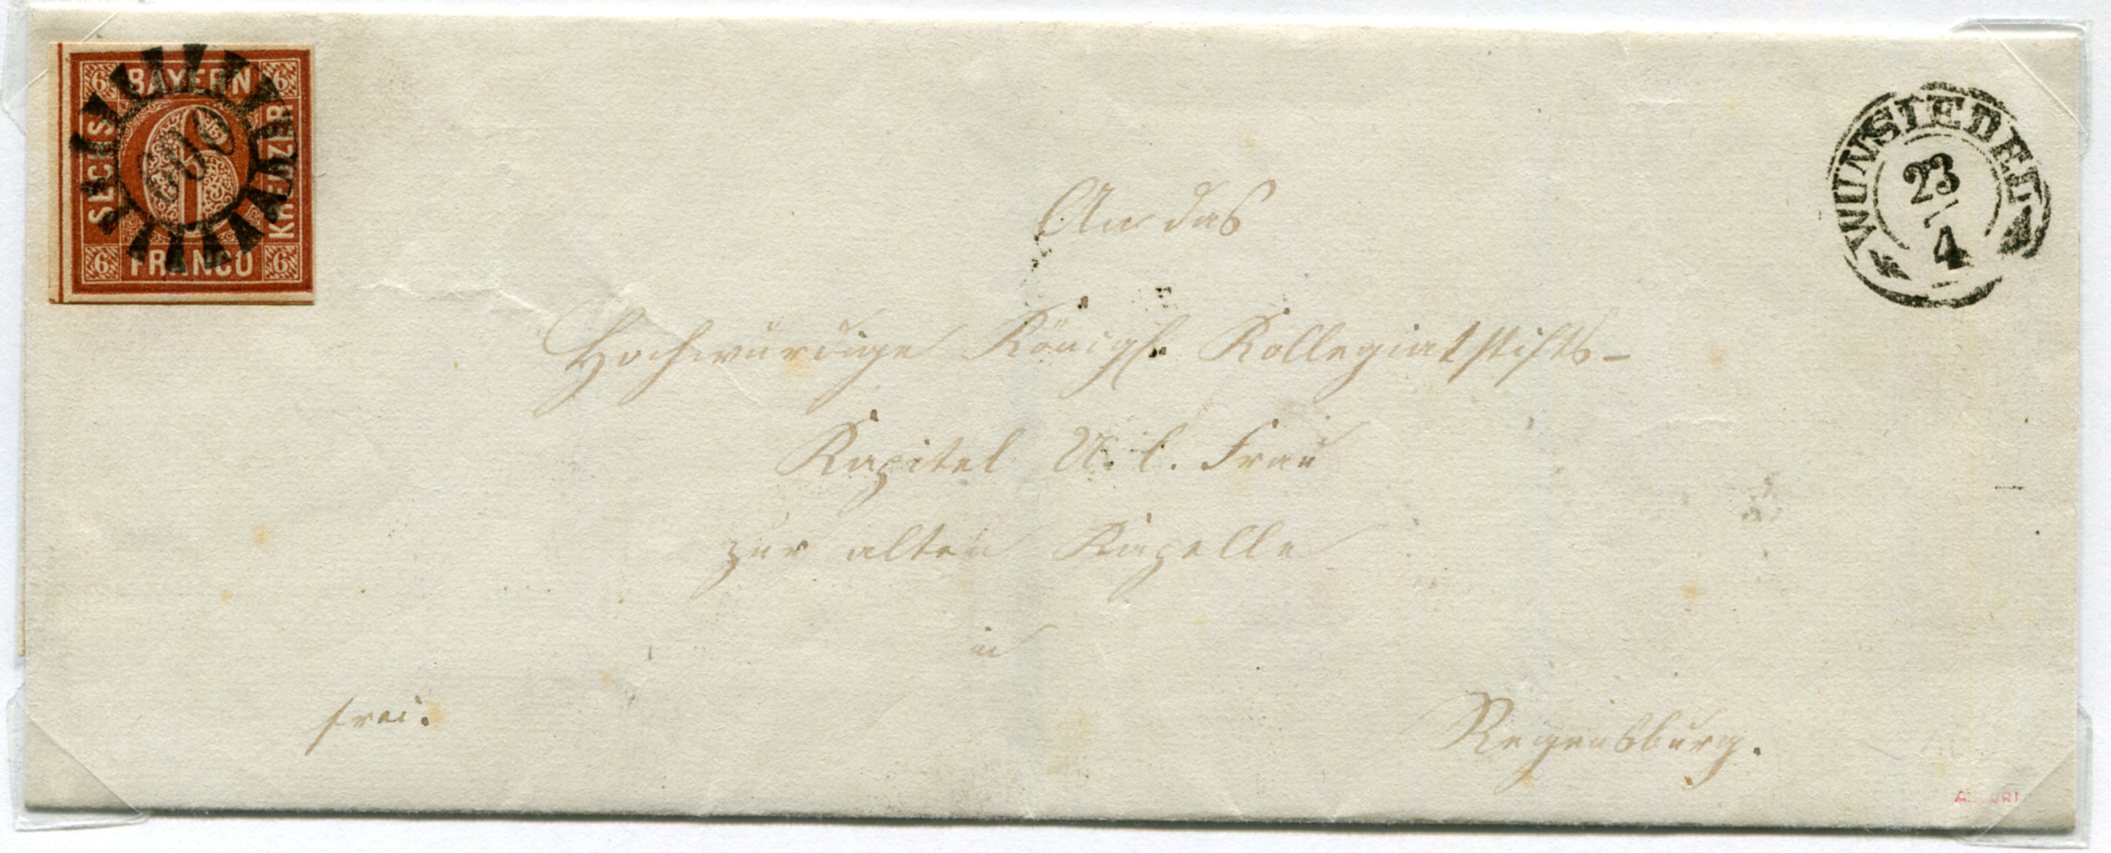 6 BAYERN 6
SECHS
KREUZER
6 FRANCO 6
600
WUNSIEDEL
23
4
An das
Hochwürdige Königl. Kollegiatstifts-
Kapitel U. l. Frau
zur alten Kapelle
in
frei.
Regensburg.